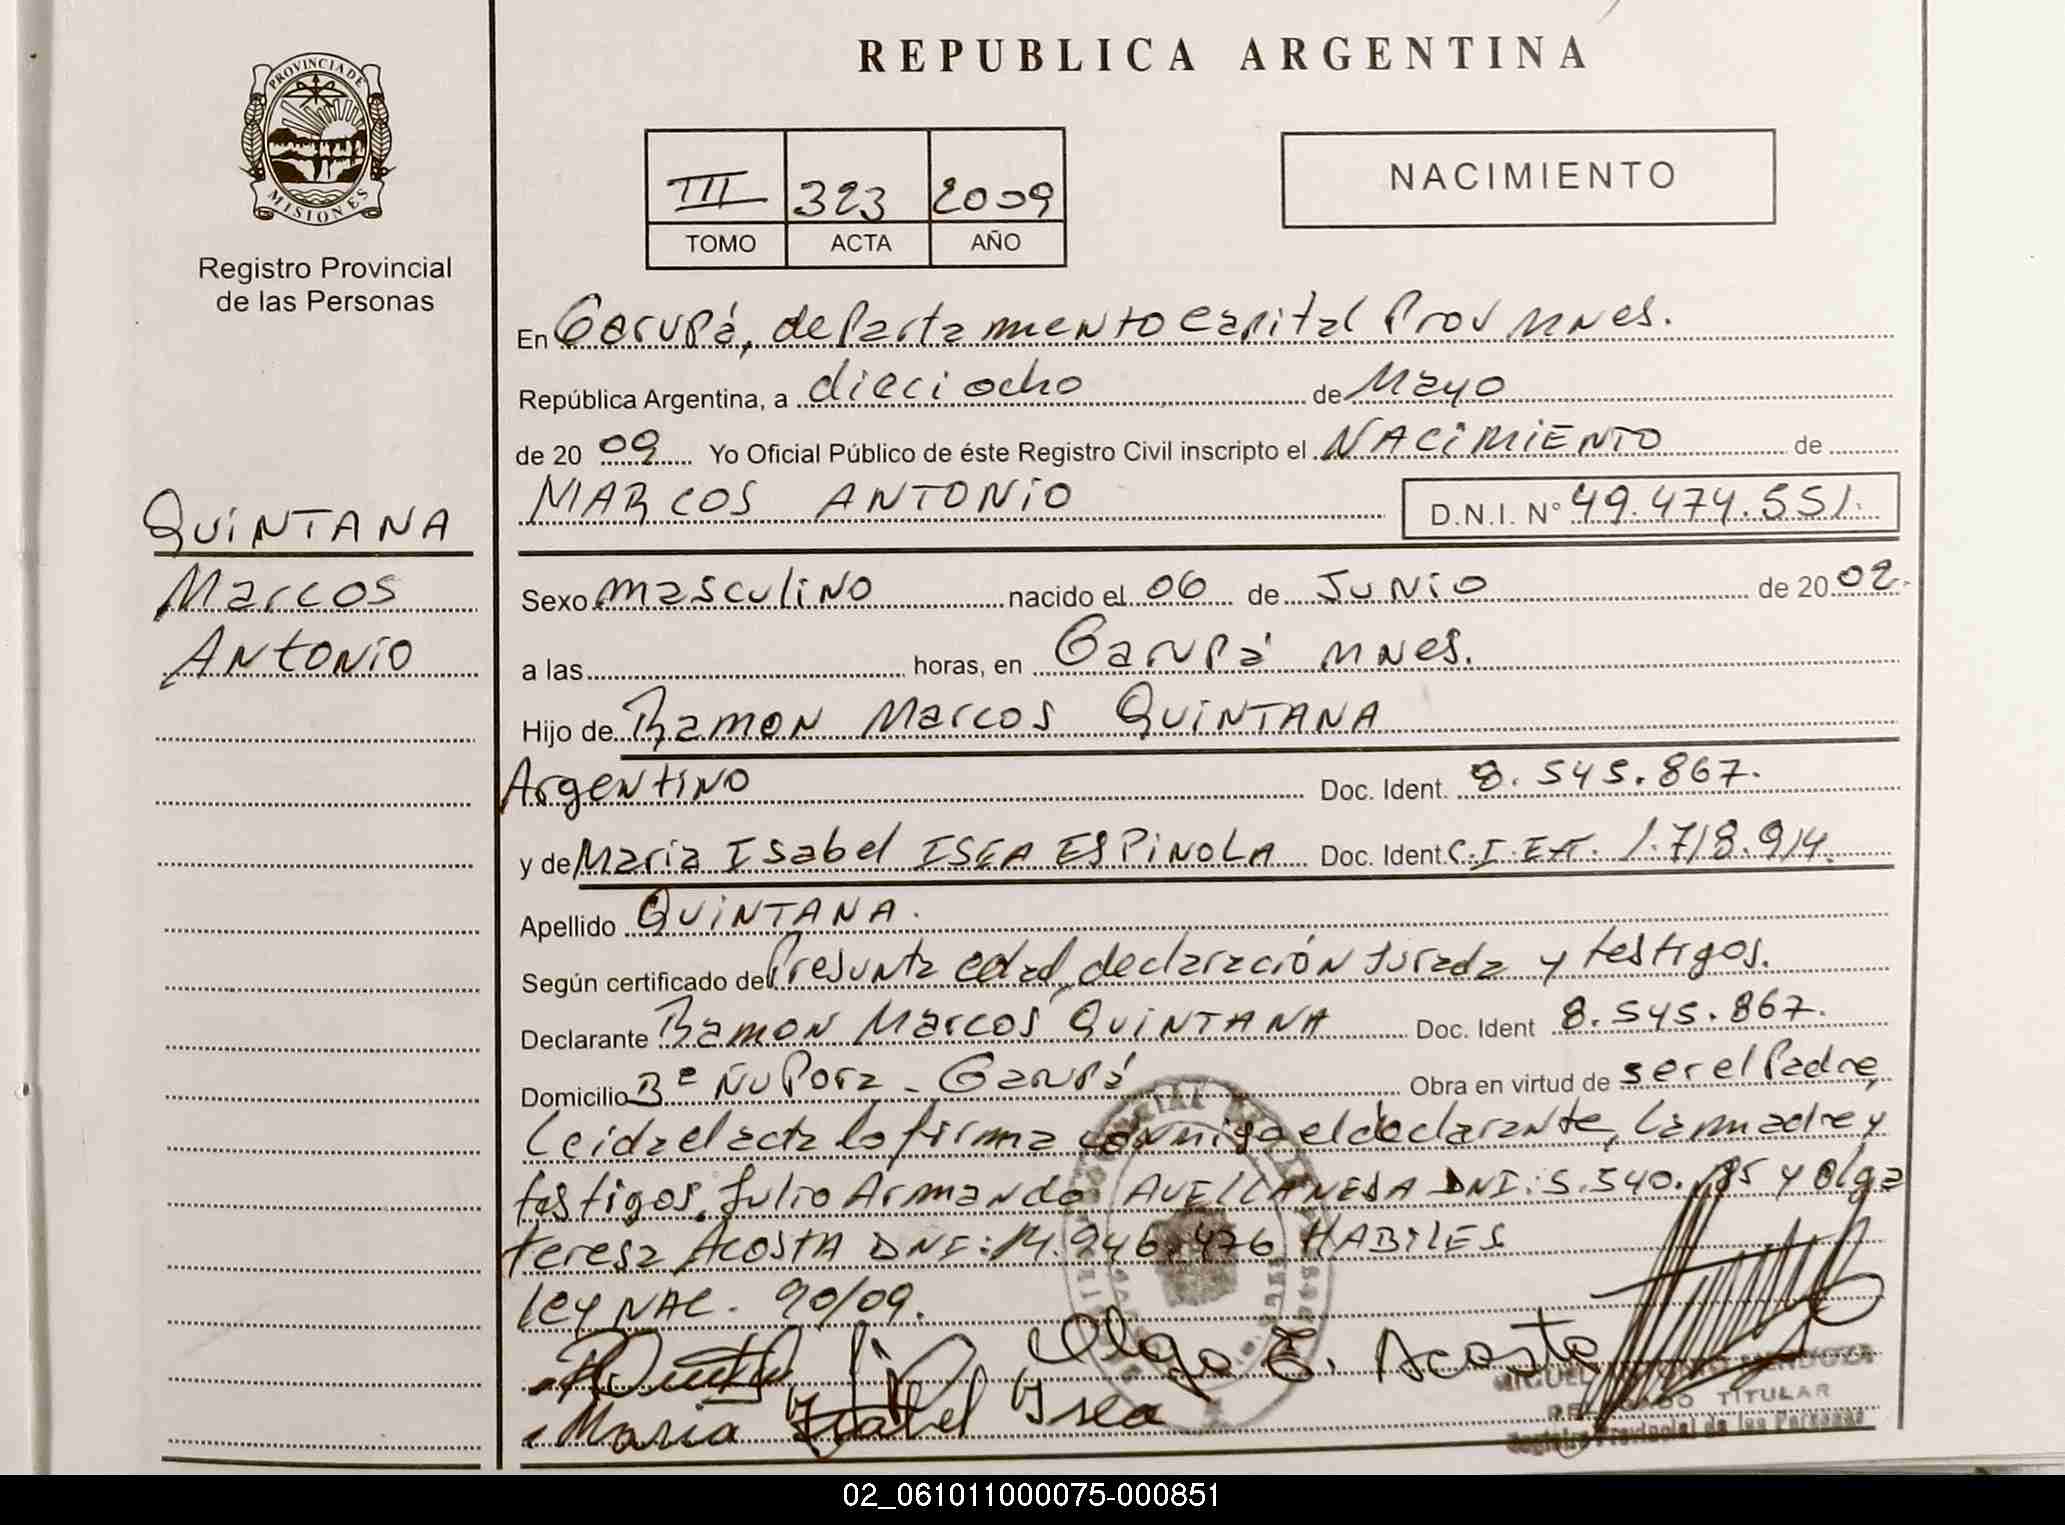 REPUBLICA ARGENTINA
PROVINCIA DE
MISIONES
Registro Provincial
de las Personas
III 323 2009
TOMO ACTA AÑO
NACIMIENTO
QUINTANA
Marcos
Antonio
En Garupá, departamento capital Prov Mnes.
República Argentina, a dieciocho de Mayo
de 20 09 Yo Oficial Público de éste Registro Civil inscripto el NACIMIENTO de
MARCOS ANTONIO D.N.I. N° 49.474.551.
Sexo masculino nacido el 06 de JUNIO de 20 02.
a las horas, en Garupá Mnes.
Hijo de Ramon Marcos QUINTANA
Argentino Doc. Ident. 8.545.867.
y de Maria Isabel ISEA ESPINOLA Doc. Ident C.I.EXT. 1.718.914.
Apellido QUINTANA.
Según certificado de Presunta edad, declaración Jurada y testigos.
Declarante Ramon Marcos QUINTANA Doc. Ident 8.545.867.
Domicilio Bº Ñu Pora - Garupá Obra en virtud de ser el Padre,
Leida el acta lo firma conmigo el declarante, la madre y
testigos. Julio Armando AVELLANEDA DNI: 5.540. y Olga
teresa ACOSTA DNI: 14.946.476 HABILES
Ley NAC. 90/09.
Olga E. Acosta
Maria Isabel Isea
MIGUEL MENDOZA
TITULAR
Registro Provincial de las Personas
02_061011000075-000851